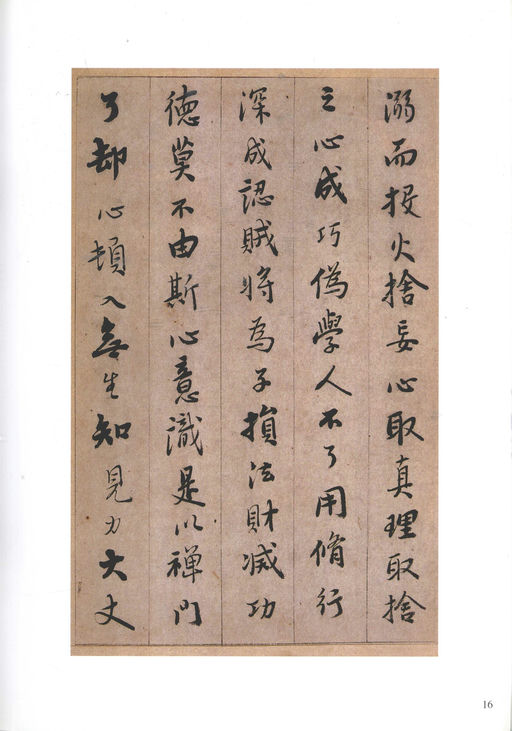 溺而投火捨妄心取真理取捨
之心成巧偽學人不了用脩行
深成認賊將為子損法財減功
德莫不由斯心意識是以禅門
了却心頓入無生知見力大丈
16